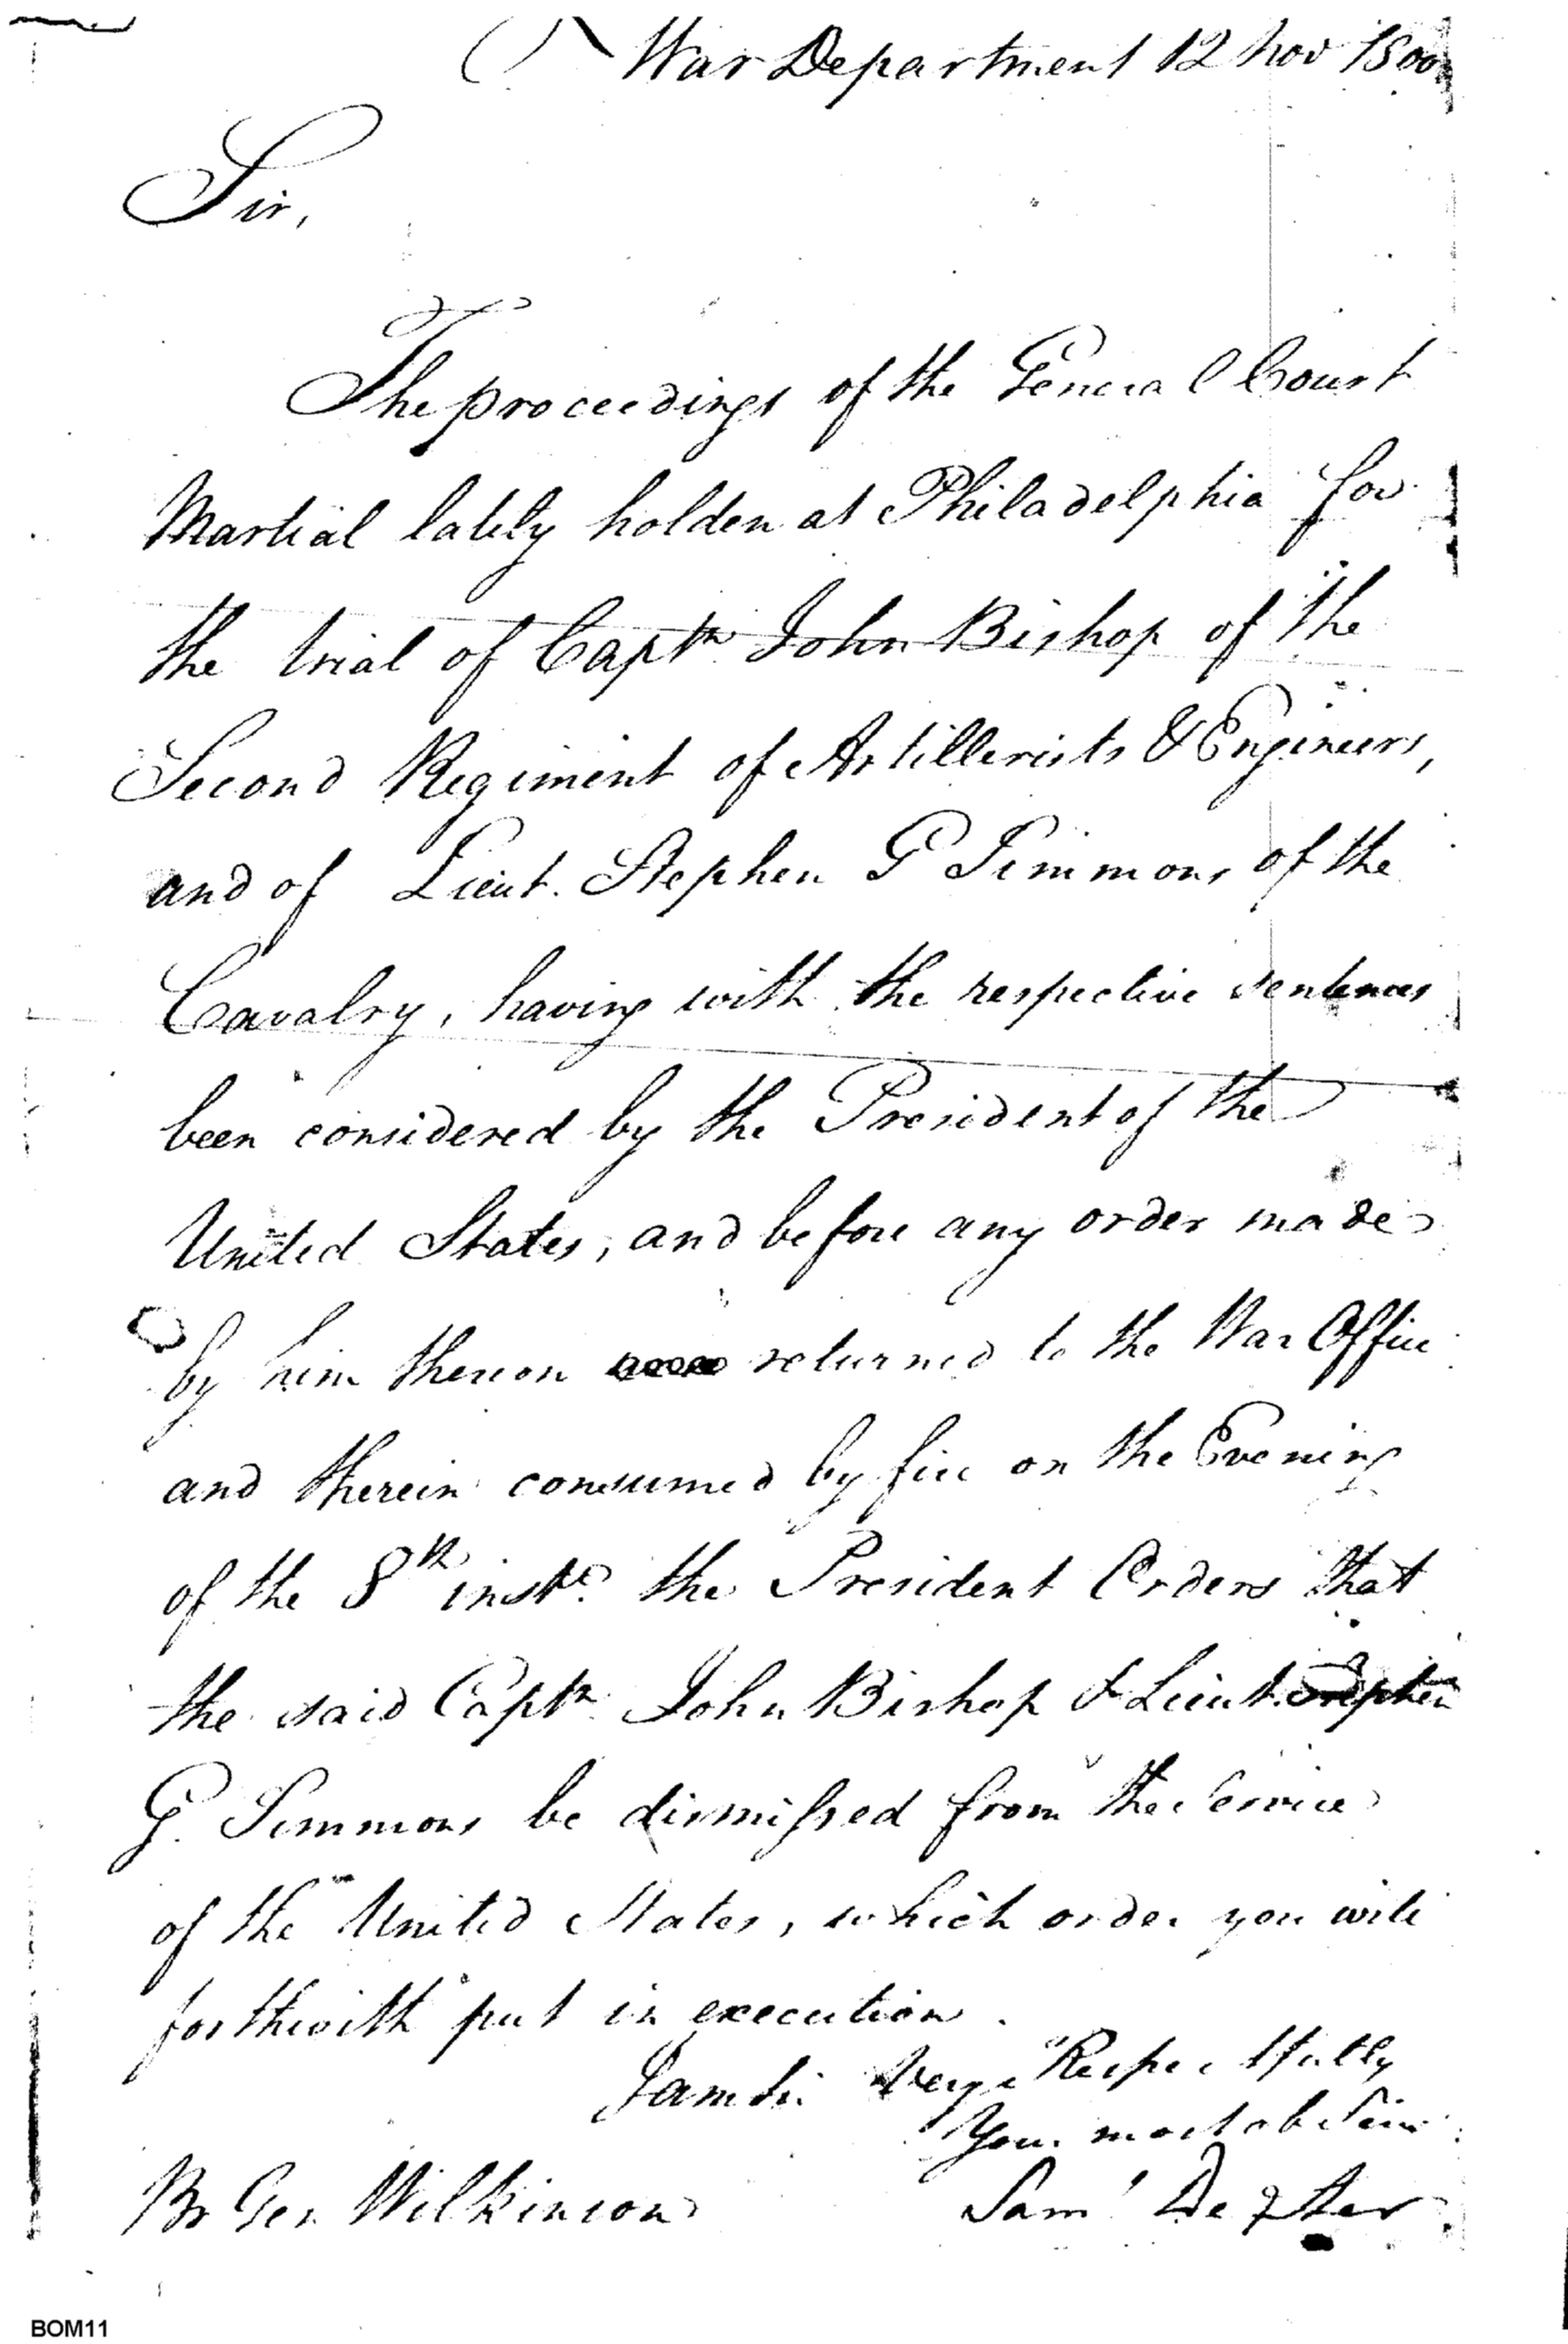 War Department 12 Nov 1800
Sir,
The proceedings of the General Court
Martial lately holden at Philadelphia for
the trial of Captn John Bishop of the
Second Regiment of Artillerists & Engineers,
and of Lieut. Stephen G Simmons of the
Cavalry, having with the respective sentences
been considered by the President of the
United States, and before any order made
by him thereon returned to the War Office
and therein consumed by fire on the Evening
of the 8th inst. the President Orders that
the said Captn John Bishop & Lieut. Stephen
G. Simmons be dismissed from the Service
of the United States, which order you will
forthwith put in execution.
I am Sir Very Respectfully
Your most ob Serv
Br Gen Wilkinson
Saml Dexter
BOM11